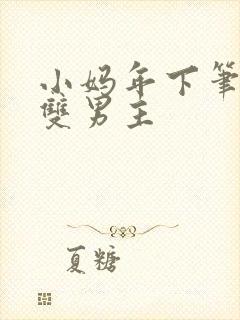 小妈年下筆
雙男主
夏糖